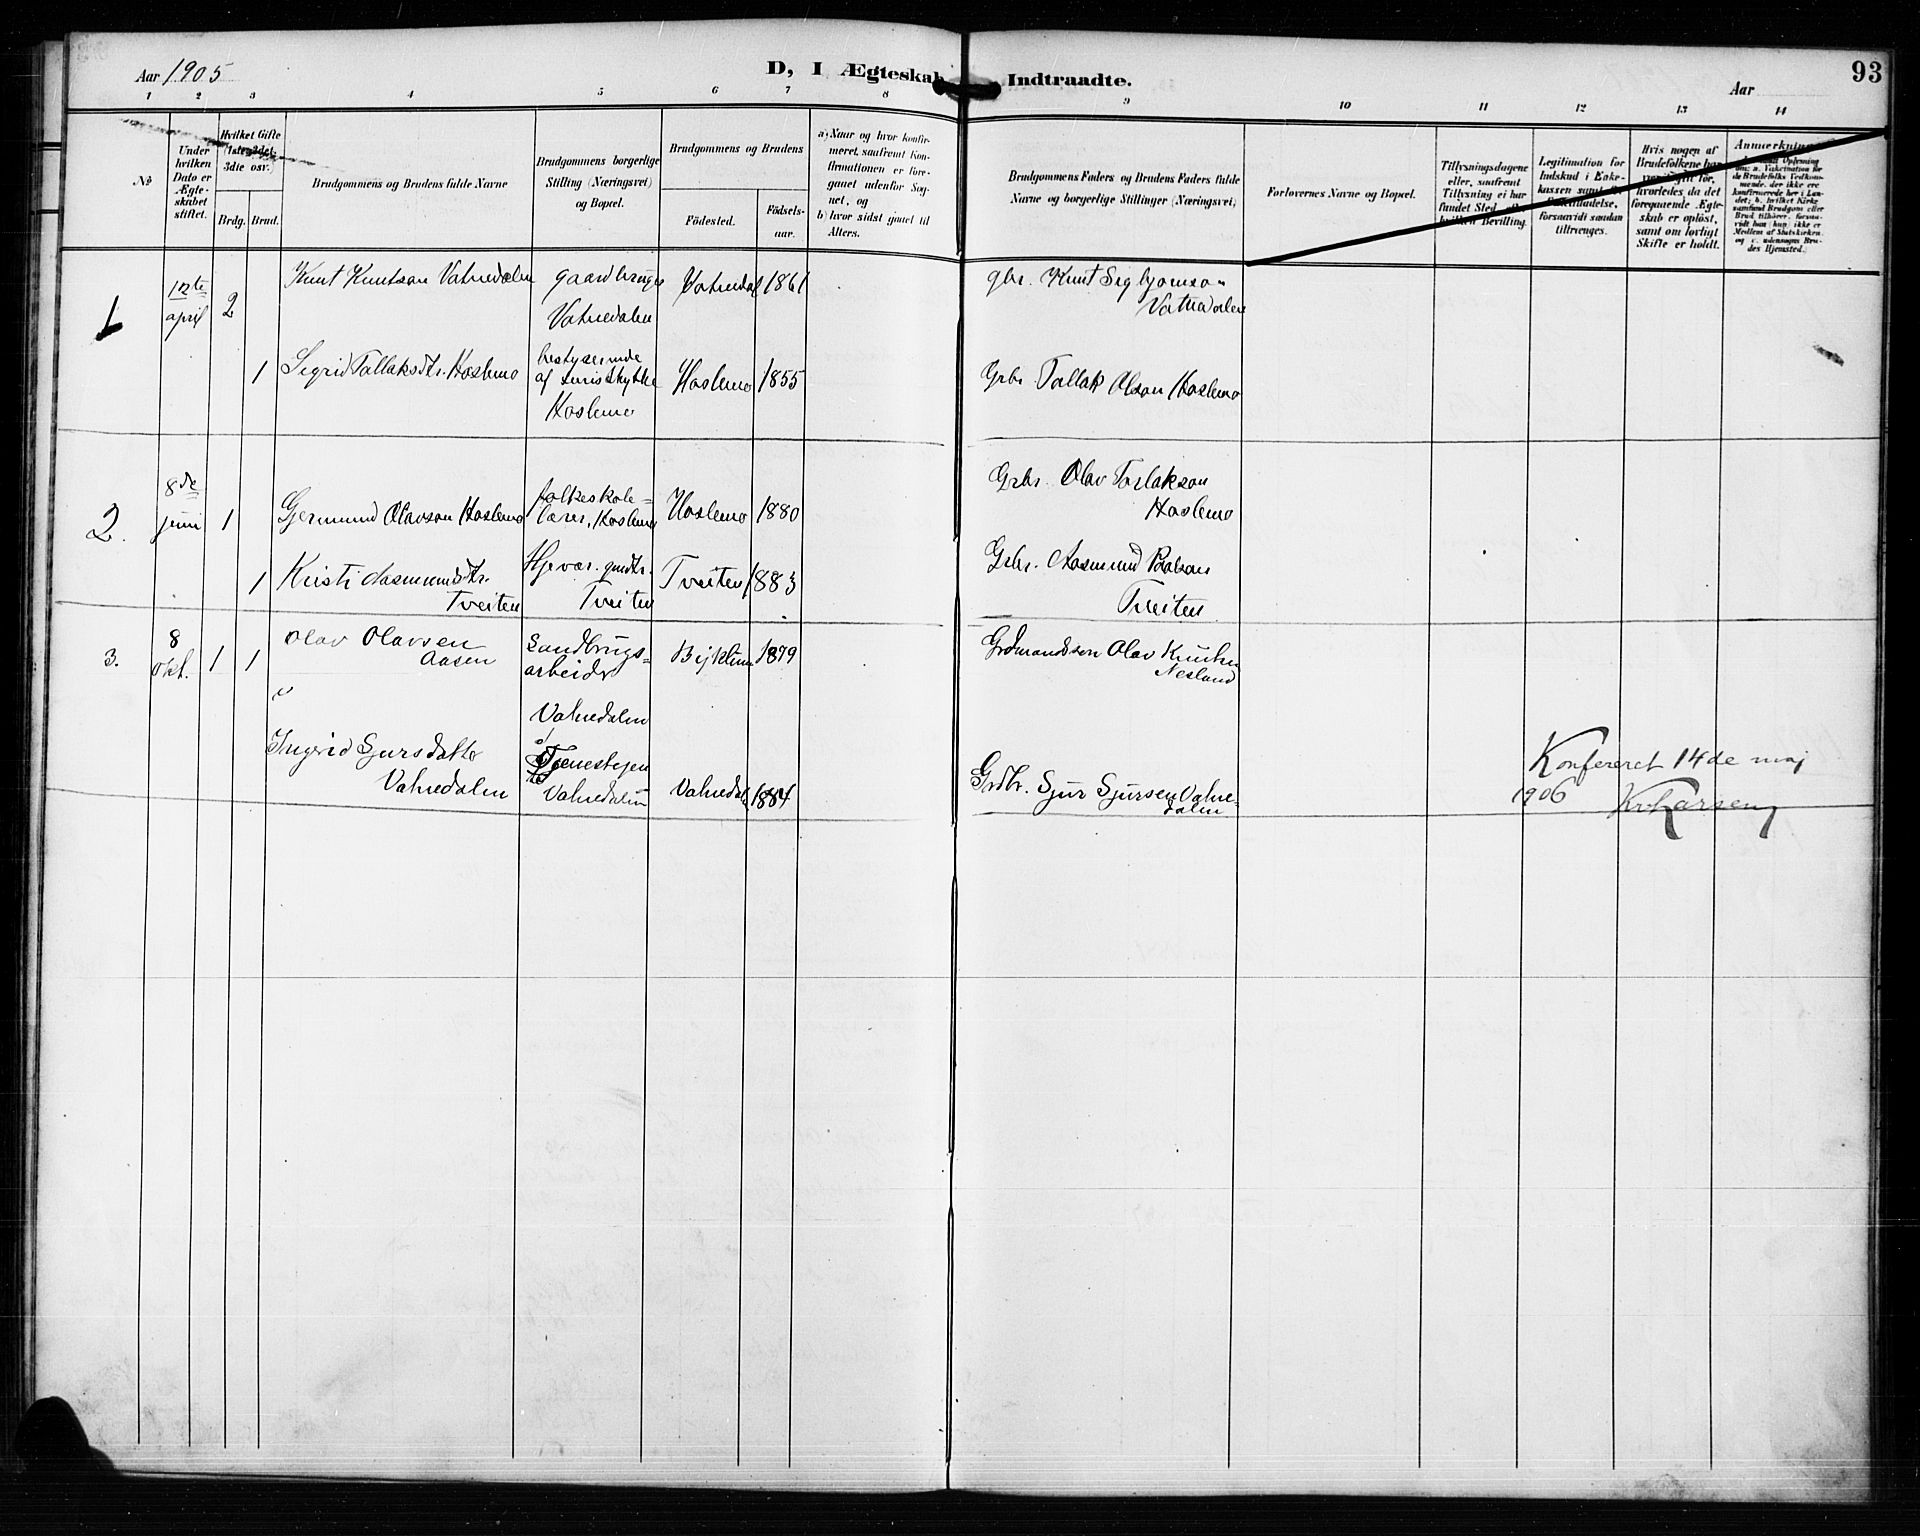 Aar 1905
D, I Ægteskab Indtraadte.
Aar
93
1 2 3 4 5 6 7 8 9 10 11 12 13 14
No
Under hvilken Dato er Ægteskabet stiftet.
Hvilket Gifte (1ste, 2det, 3die osv.
Brdg. Brud.
Brudgommens og Brudens fulde Navne
Brudgommens borgerlige Stilling (Næringsvei) og Bopæl.
Brudgommens og Brudens
Födested.
Födsels-aar.
a) Naar og hvor konfirmeret, saafremt Konfirmationen er foregaaet udenfor Sognet, og
b) hvor sidst gaaet til Alters.
Brudgommens Faders og Brudens Faders fulde Navne og borgerlige Stillinger (Næringsvei)
Forlovernes Navne og Bopæl.
Tillysningsdagene eller, saafremt Tillysning ei har fundet Sted, efter hvilken Bevilling.
Legitimation for Indskud i Enkekassen samt
forsaavidt saadan tiltrænges.
Hvis nogen af Brudefolkene har været gift för, hvorledes da det foregaaende Ægteskab er oplöst, samt om lovligt Skifte er holdt.
Anmærkning
1
12te april
2
Knut Knutson Vatnedalen
gaardbruger
Vatnedalen
Vatnedal 1861
gbr. Knut Sigbjørnson
Vatnedalen
1
Sigrid Tallaksdtr. Hoslemo
bestyrerinde
Hoslemo
Hoslemo 1855
Grbr. Tallak Olson Hoslemo
2.
8de juni
1
Gjermund Olavson Hoslemo
folkeskole=
lærer, Hoslemo
Hoslemo 1880
Grbr. Olav Torlakson
Hoslemo
1
Kristi Aasmundsdtr.
Tveiten
Tveiten
Tveiten 1883
Grbr. Aasmund
Tveiten
3.
8 Okt.
1 1
Olav Olavsen
Aasen
Landbrugs=
arbeider
Vatnedalen
Byklum 1879
Olav Knutsen
Nesland
Ingerid Sjursdatter
Vatnedalen
Tjenestejen
Vatnedalen
Vatnedal 1884
Grdbr. Sjur Sjursen Vatne=
dalen
Konfereret 14de maj
1906